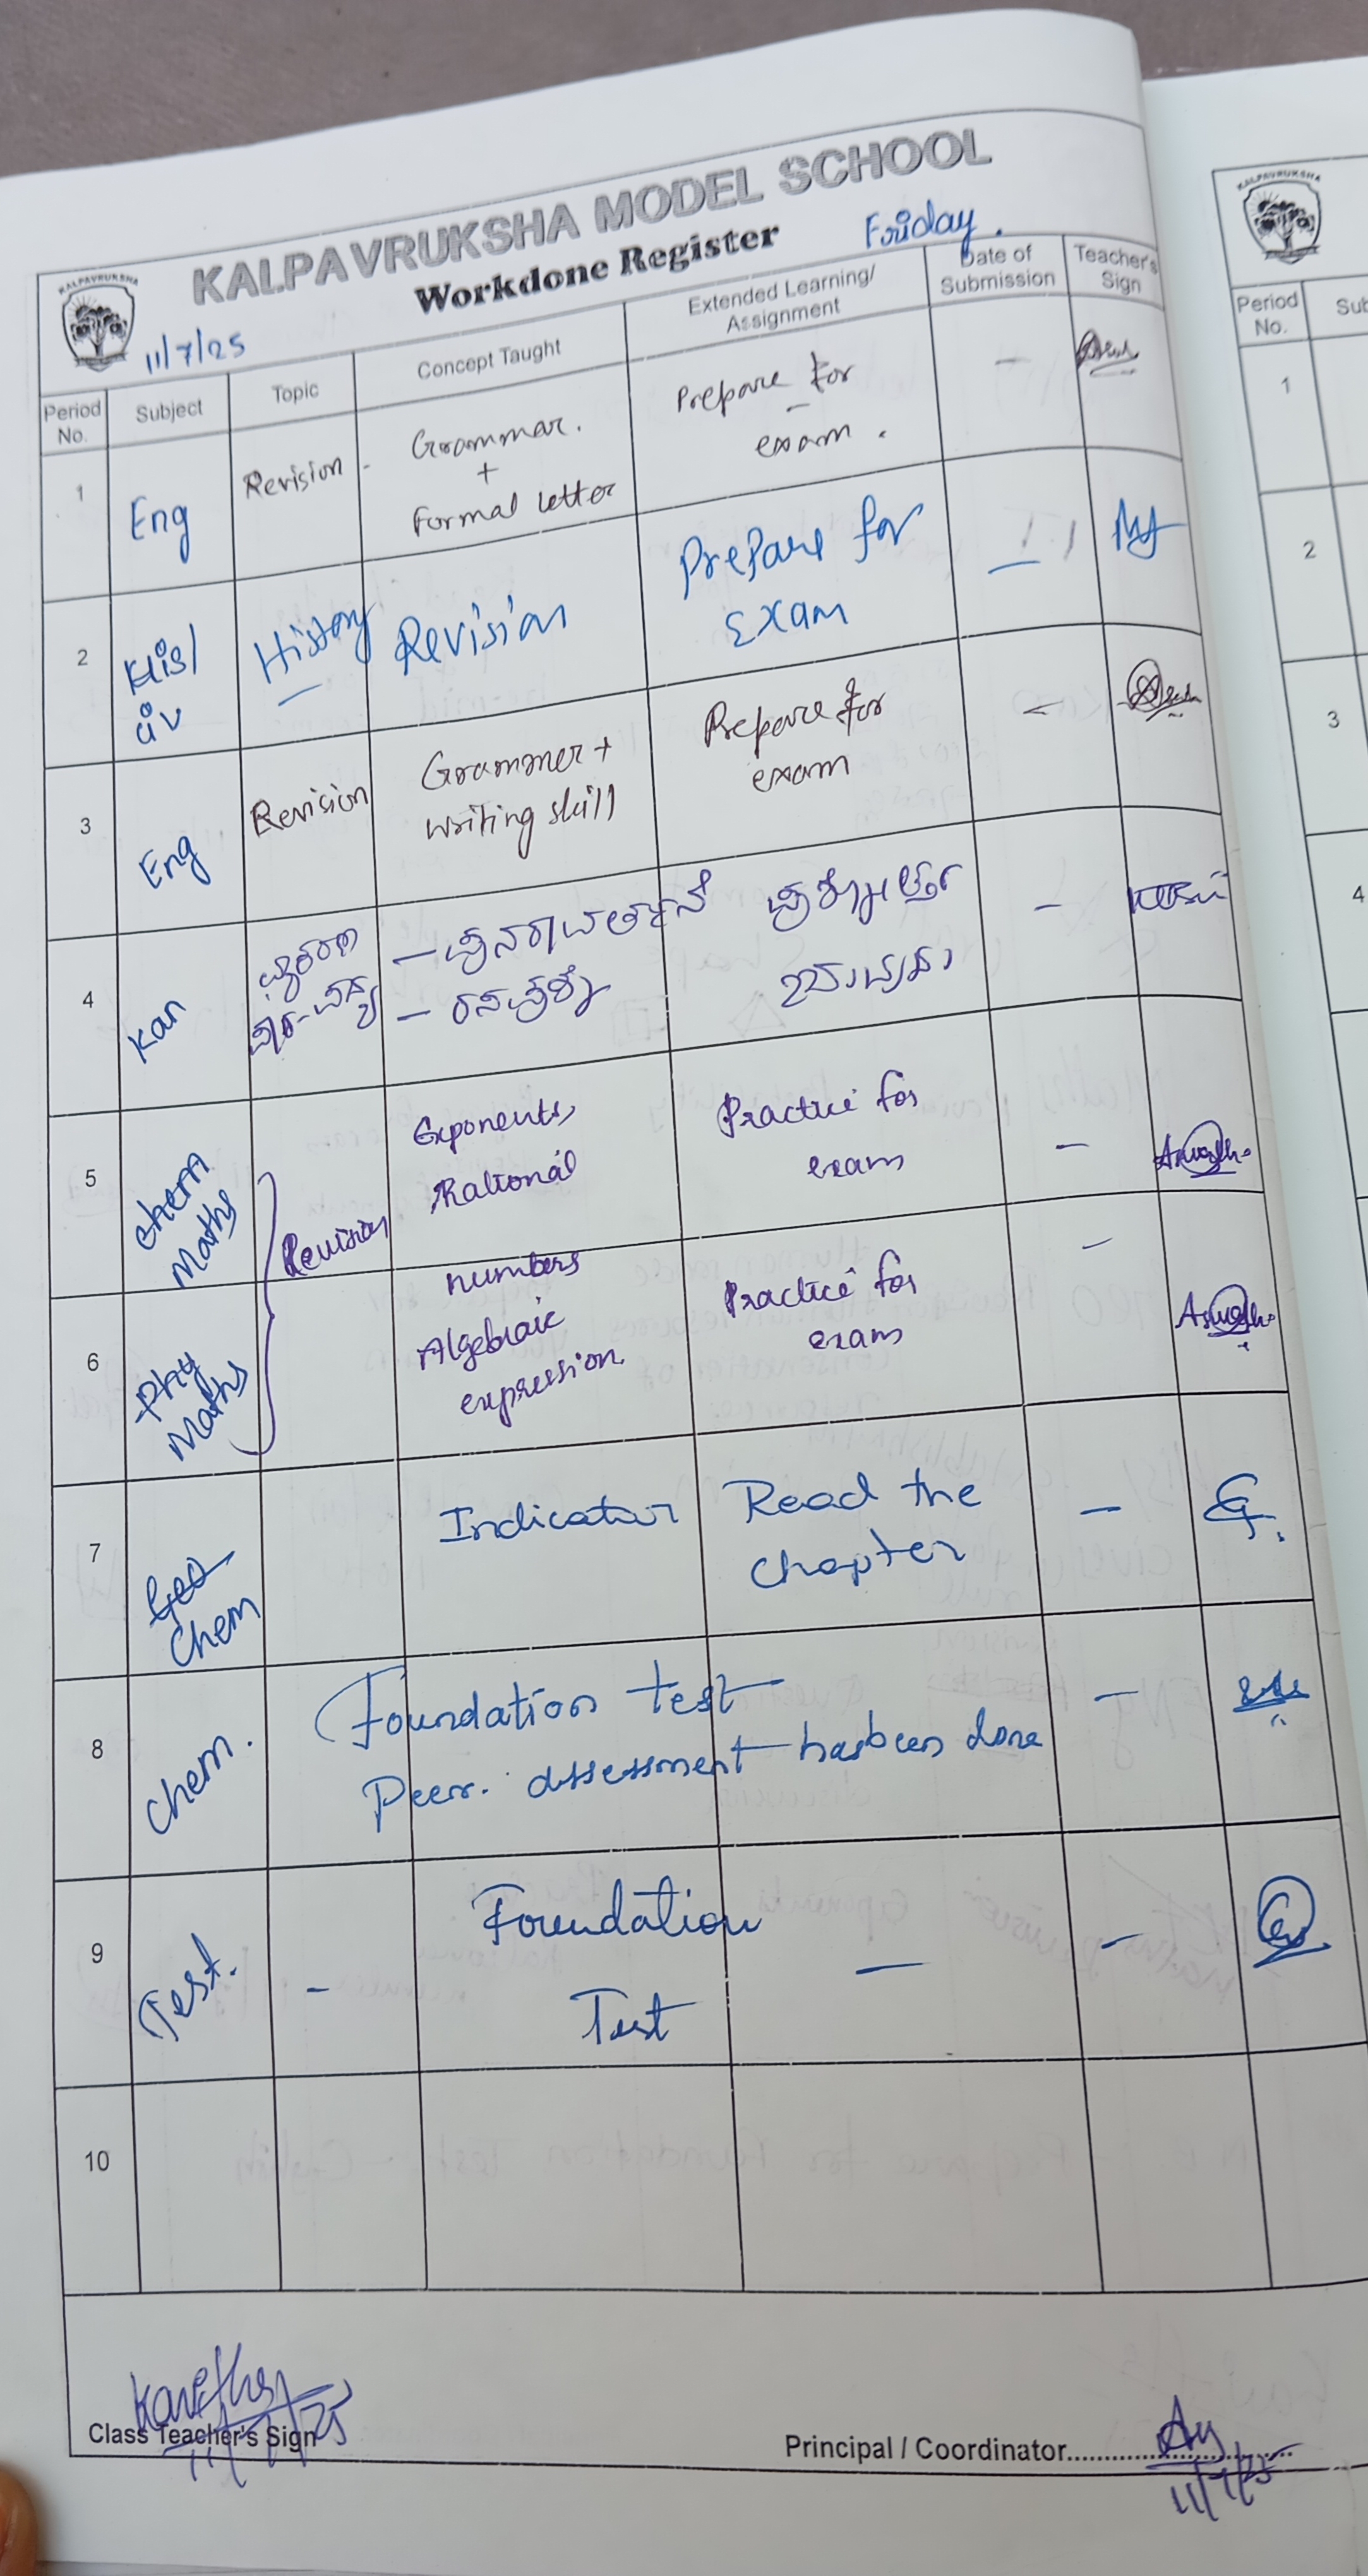 KALPAVRUKSHA MODEL SCHOOL
Workdone Register
Friday.
KALPAVRUKSHA
11/7/25
Period No.
Subject
Topic
Concept Taught
Extended Learning/ Assignment
Date of Submission
Teacher's Sign
1
Eng
Revision -
Grammar.
+
Formal letter
Prepare for
exam.
-
2
His/
civ
History
Revision
Prepare for
Exam
-
3
Eng
Revision
Grammer +
writing skill
Prepare for
exam
-
4
Kan
ವ್ಯಾಕರಣ
- ಪುನರಾವರ್ತನೆ
- ರಸಪ್ರಶ್ನೆ
ಪ್ರಶ್ನೋತ್ತರ
-
5
chem
Maths
Revision
Exponents,
Rational
Practice for
exam
-
6
Phy
Maths
numbers
Algebraic
expression.
Practice for
exam
-
7
Geo
Chem
Indicator
Read the
chapter
-
8
chem.
Foundation test
Peer. assessment has been done
-
9
Test.
-
Foundation
Test
-
-
10
Kavitha
11/7/25
Class Teacher's Sign
Principal / Coordinator
11/7/25
KALPAVRUKSHA
Period No.
Sub
1
2
3
4